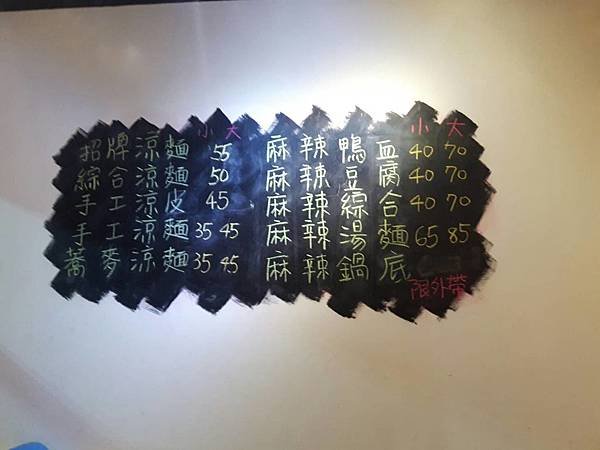 小 大
招牌涼麵 55
綜合涼麵 50
手工涼皮 45
手工涼麵 35 45
蕎麥涼麵 35 45
小 大
麻辣鴨血 40 70
麻辣豆腐 40 70
麻辣綜合 40 70
麻辣湯麵 65 85
麻辣鍋底
限外帶